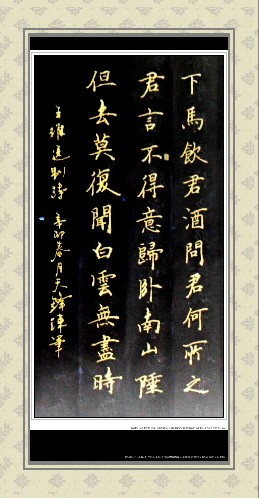 下馬飲君酒問君何所之
君言不得意歸卧南山陲
但去莫復聞白雲無盡時
王維送別詩 辛卯春月天鐸筆